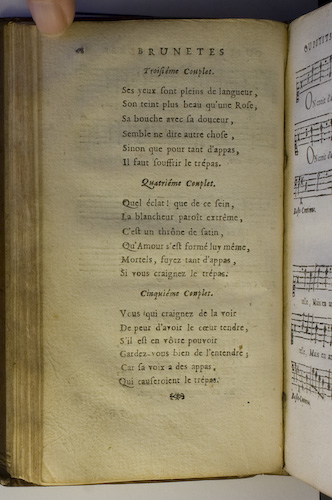 BRUNETES
Troisiéme Couplet.
Ses yeux sont pleins de langueur,
Son teint plus beau qu'une Rose,
Sa bouche avec sa douceur,
Semble ne dire autre chose,
Sinon que pour tant d'appas,
Il faut souffrir le trépas.
Quatriéme Couplet.
Quel éclat! que de ce sein,
La blancheur paroît extrême,
C'est un thrône de satin,
Qu'Amour s'est formé luy même,
Mortels, fuyez tant d'appas,
Si vous craignez le trépas.
Cinquiéme Couplet.
Vous qui craignez de la voir
De peur d'avoir le cœur tendre,
S'il est en vôtre pouvoir
Gardez-vous bien de l'entendre;
Car sa voix a des appas,
Qui causeroient le trépas.
Basse-Continue.